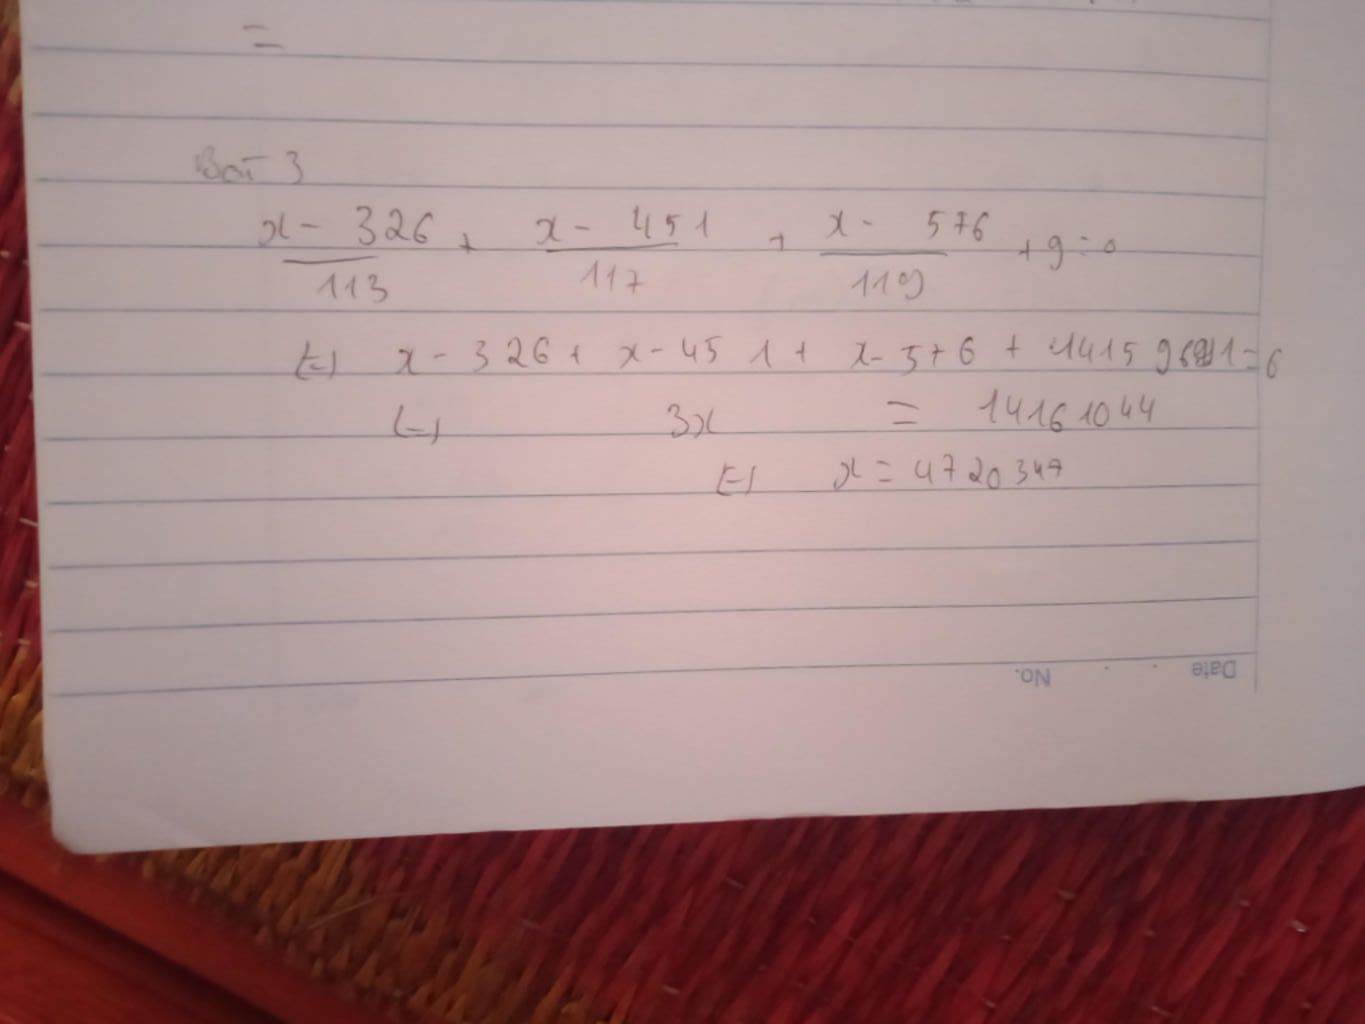 =
Bài 3
x - 326 / 113 + x - 451 / 117 + x - 576 / 119 + 9 = 0
(=) x - 326 + x - 451 + x - 576 + 14159691 = 0
(=) 3x = 14161044
(=) x = 4720347
Date No.